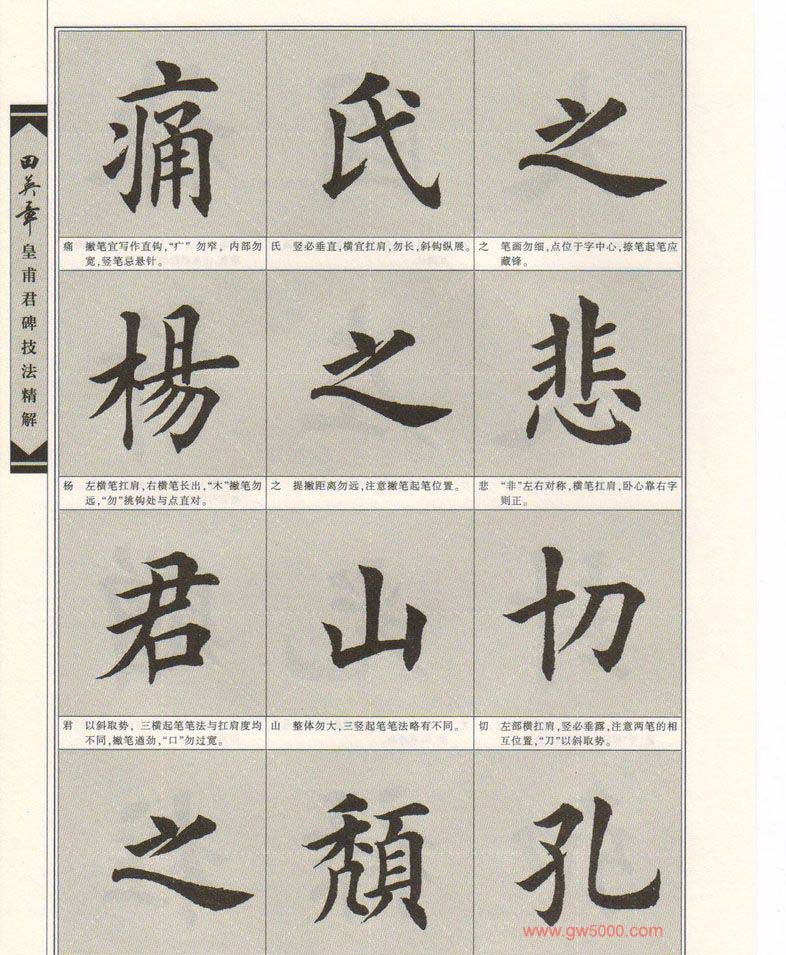 田英章皇甫君碑技法精解
痛 氏 之
痛 撇笔宜写作直钩,“疒”勿窄,内部勿
宽,竖笔忌悬针。
氏 竖必垂直,横宜扛肩,勿长,斜钩纵展。
之 笔画勿细,点位于字中心,捺笔起笔应
藏锋。
楊 之 悲
杨 左横笔扛肩,右横笔长出,“木”撇笔勿
远,“勿”挑钩处与点直对。
之 提撇距离勿远,注意撇笔起笔位置。
悲 “非”左右对称,横笔扛肩,卧心靠右字
则正。
君 山 切
君 以斜取势,三横起笔笔法与扛肩度均
不同,撇笔遒劲,“口”勿过宽。
山 整体勿大,三竖起笔笔法略有不同。
切 左部横扛肩,竖必垂露,注意两笔的相
互位置,“刀”以斜取势。
之 頹 孔
www.gw5000.com